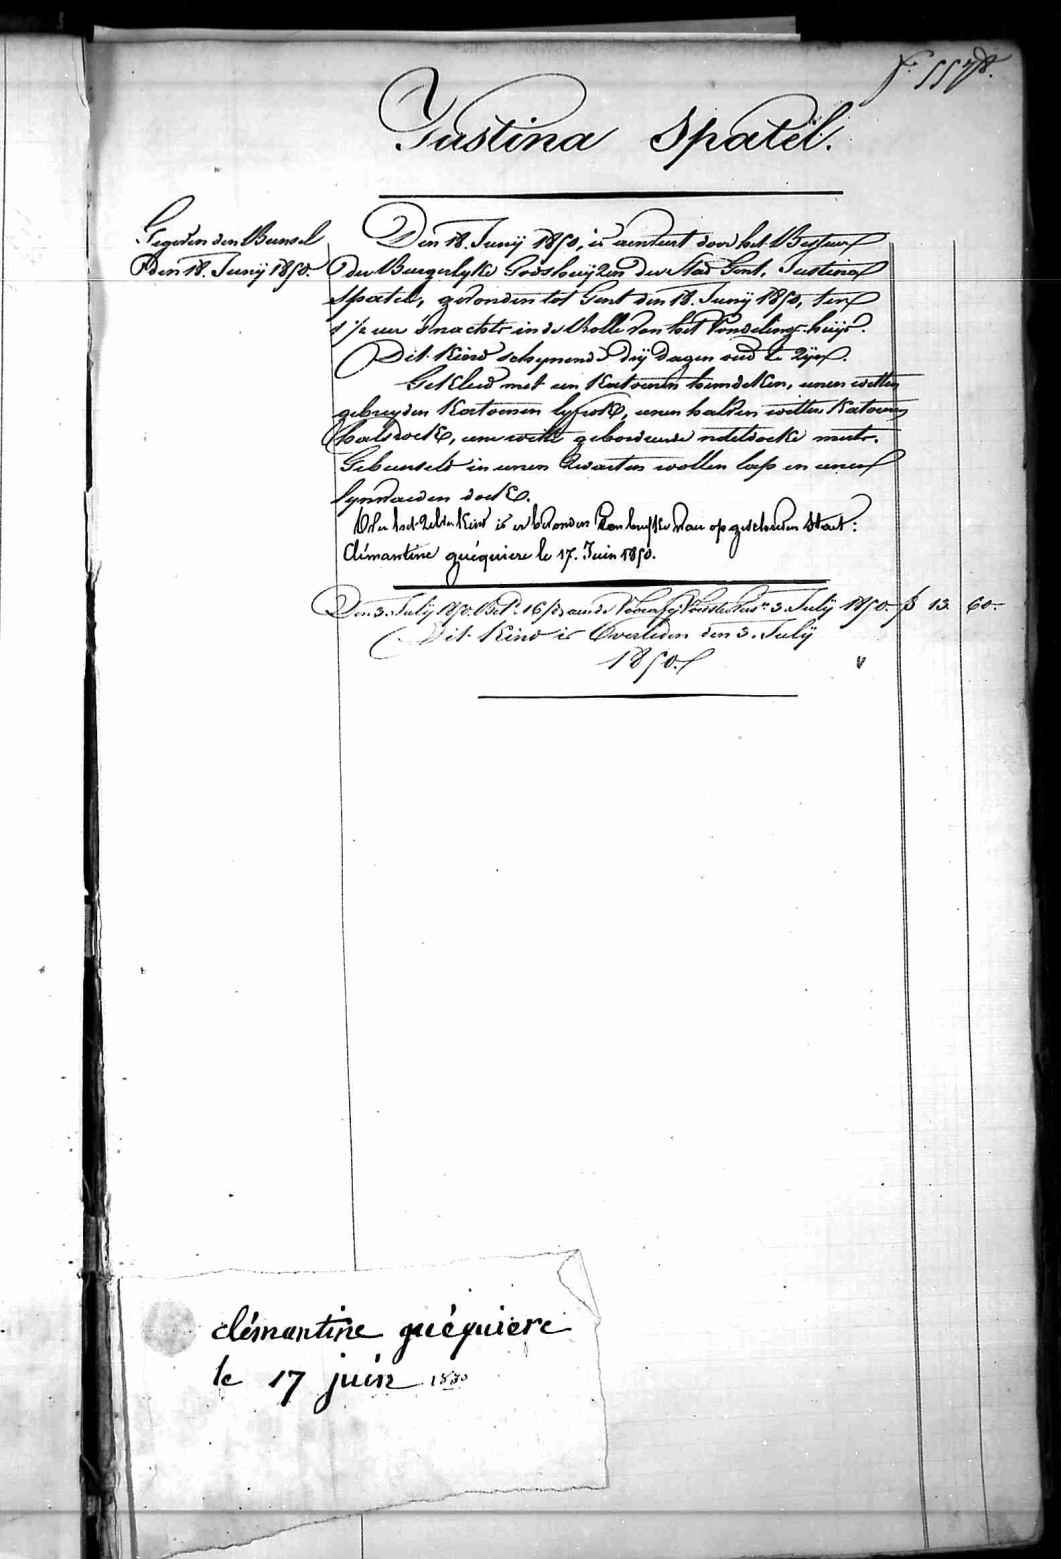 f. 5578.
Justina Spatel.
Gegeven den Bunsel
den 18. Junij 1850.
Den 18. Junij 1850, is aenveert door het Bestuer
der Burgerlyke Godshuijzen der Stad Gent, Justina
Spatel, gevonden tot Gent den 18. Junij 1850, ten
1 1/2 uer s'nachts in de Rolle van het Vondeling-huijs.
Dit Kind schynende drij dagen oud te zijn.
Gekleed met een Katoenen hemdeken, eenen witten
gebreyden Katoenen lyfrok, eenen halven witten Katoenen
halsdoek, eene witte geborduerde muts.
Gebunseld in eenen zwarten wollen lap en eenen
lynwaeden doek.
Op het zelve Kind is er bevonden een briefke van op geschreven staet:
Clémantine guéquiere le 17. Juin 1850.
Den 3. Julij 1850 aen de 3. Julij 1850. f 13. 60.
Dit Kind is Overleden den 3. Julij
1850.
clémantine guéquiere
le 17 juin 1850